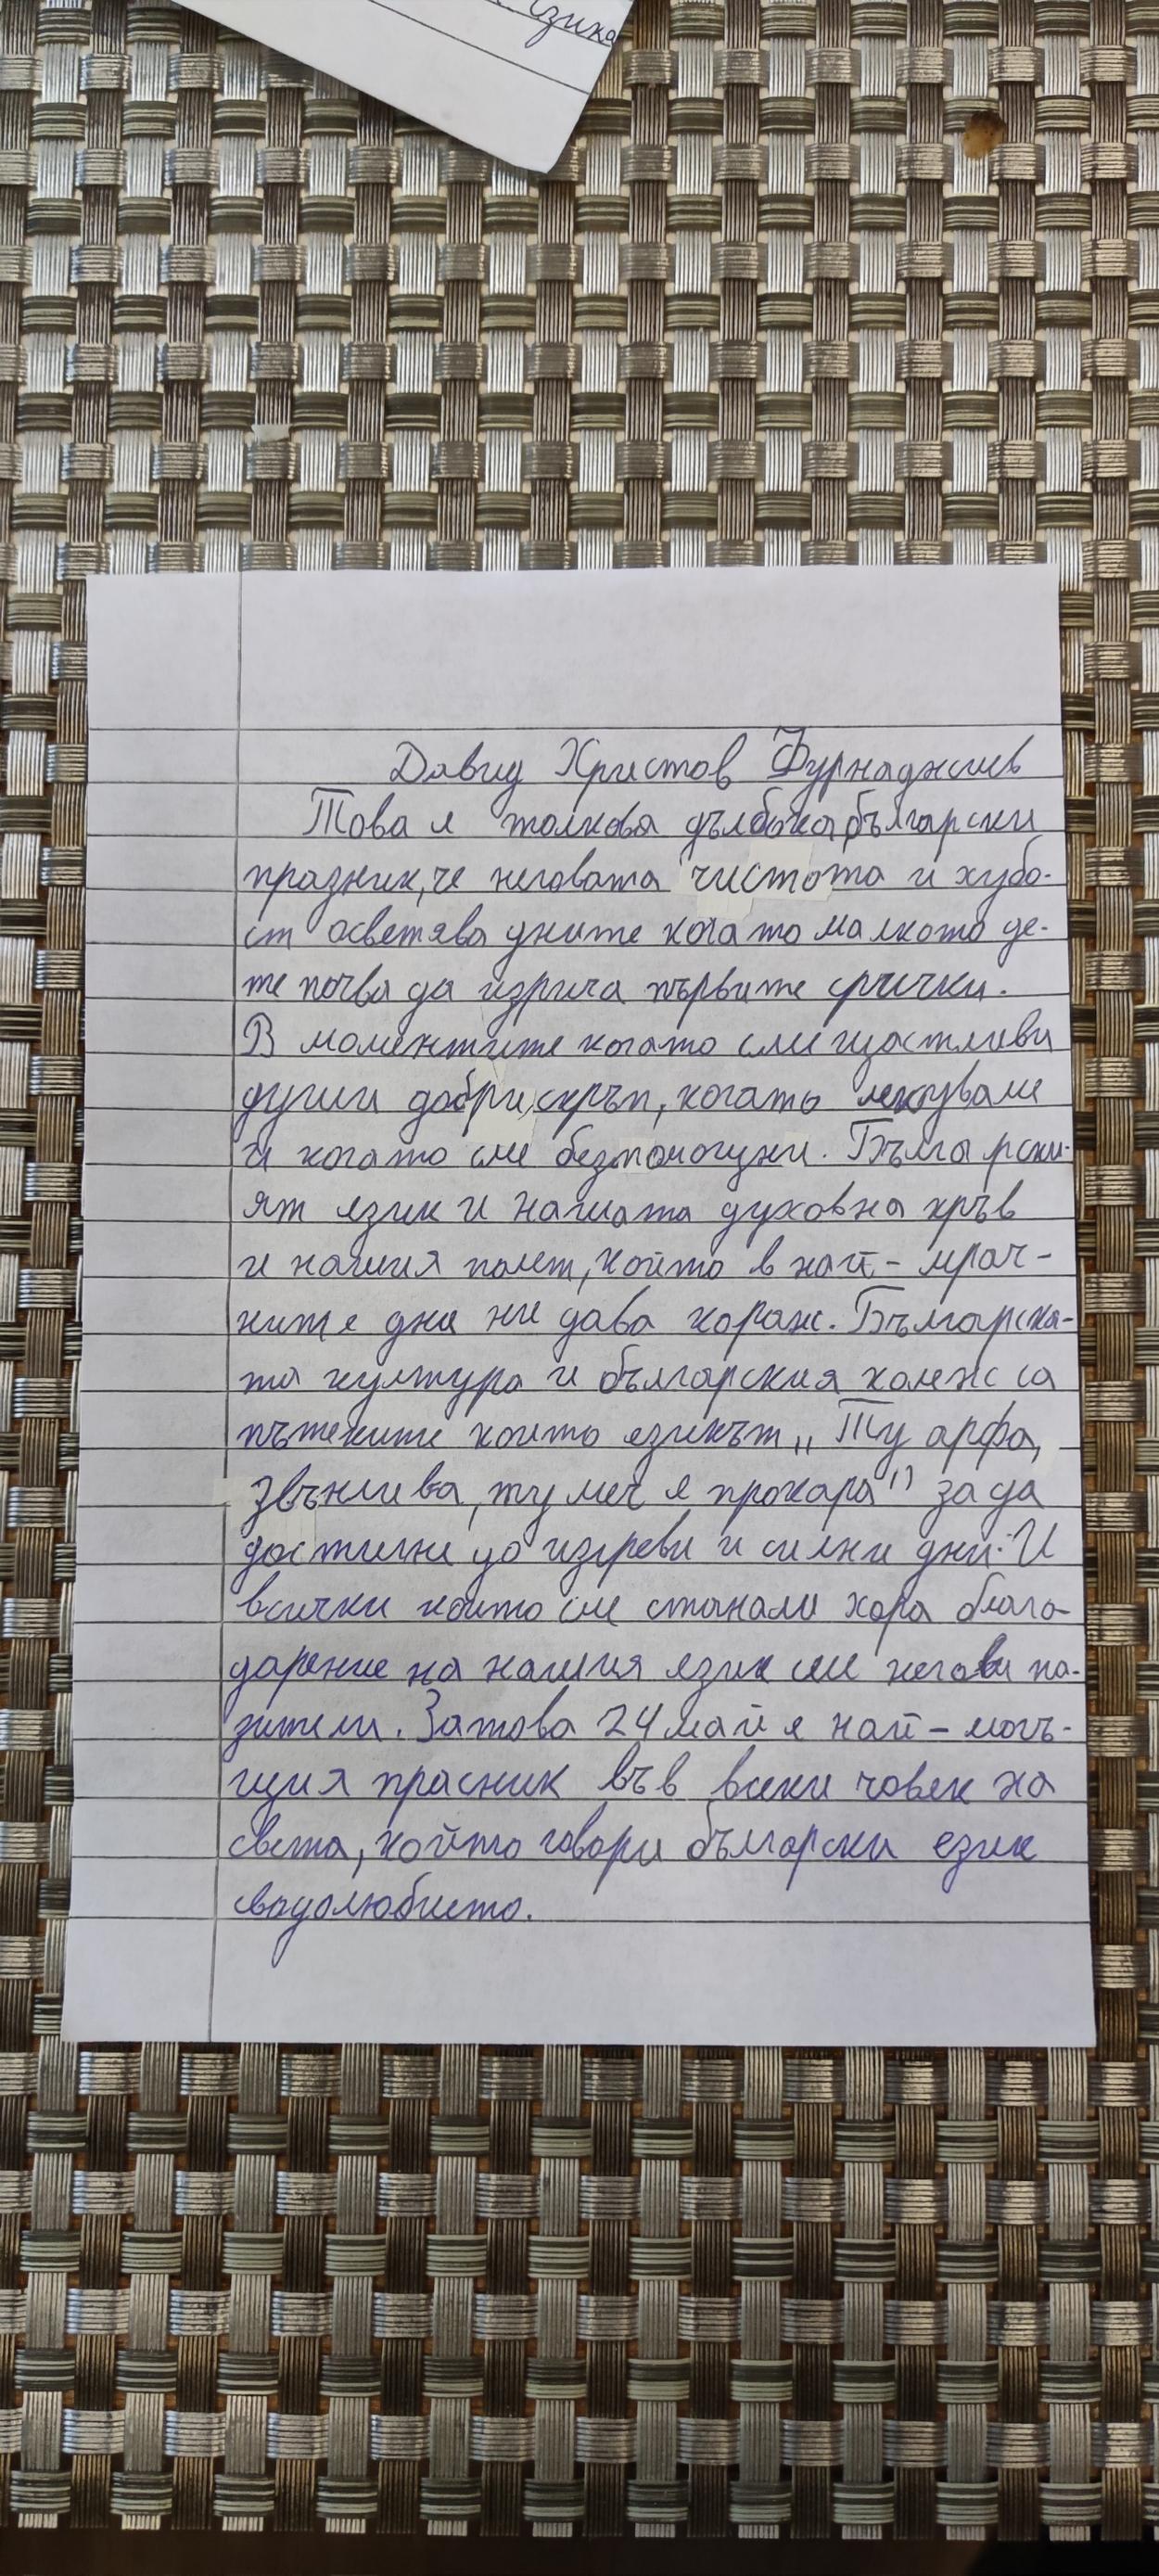 езика
Давид Христов Фурнаджиев
Това е толкова дълбока български
празник, че неговата чистота и хубо-
ст осветява дните когато малкото де-
те почва да изрича първите срички.
В моментите когато сме щастливи
души добри, скръп, когато
и когато сме безпомощни. Български-
ят език и нашата духовна кръв
и нашия полет, който в най-мрач-
ните дни ни дава кораж. Българска-
та култура и българския колеж са
пътеките които езикът „Ту арфа,
звънлива, ту меч е прокара" за да
достигне до изгреви и силни дни. И
всички които сме станали хора благо-
дарение на нашия език сме негови па-
зители. Затова 24 май е най-могъ-
щия прасник във всеки човек на
света, който говори български език
свадолюбието.